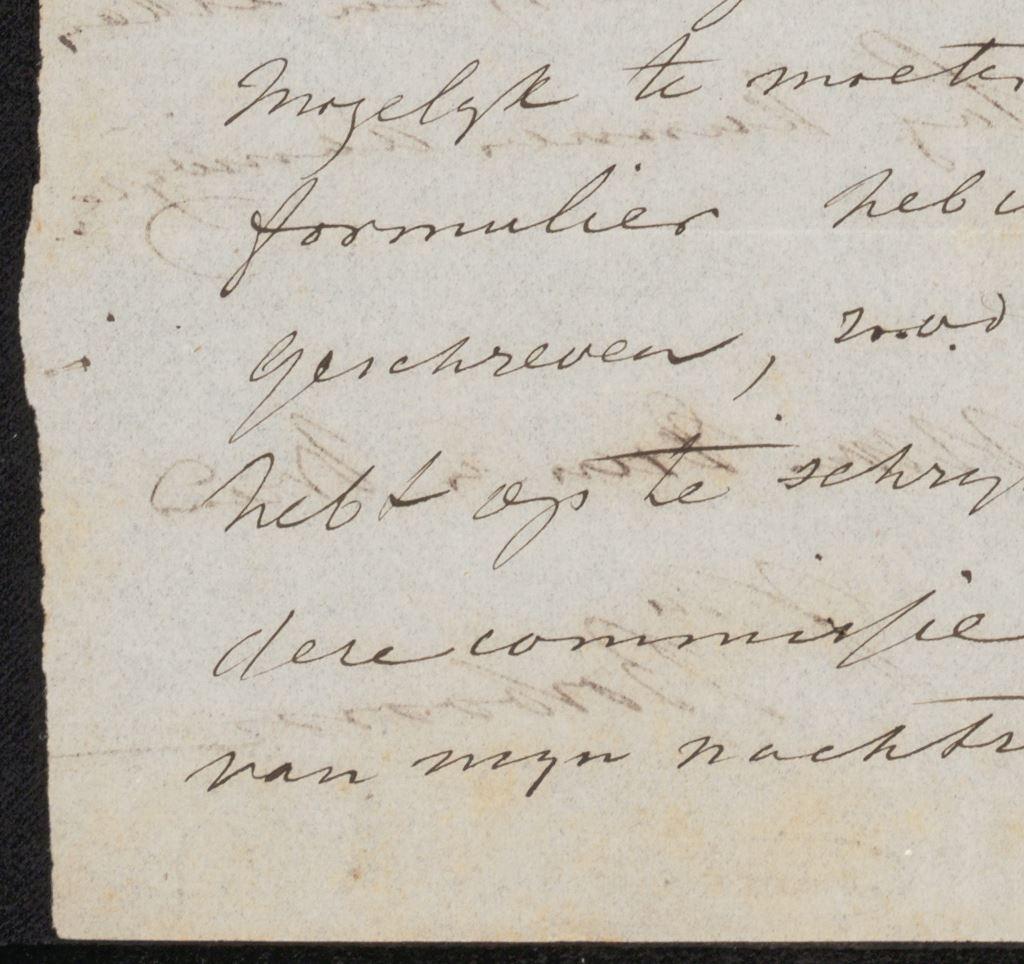 Mogelyk te moeten
formulier heb i
geschreven,
hebt op te schry
dese commissie
van myn nachtr